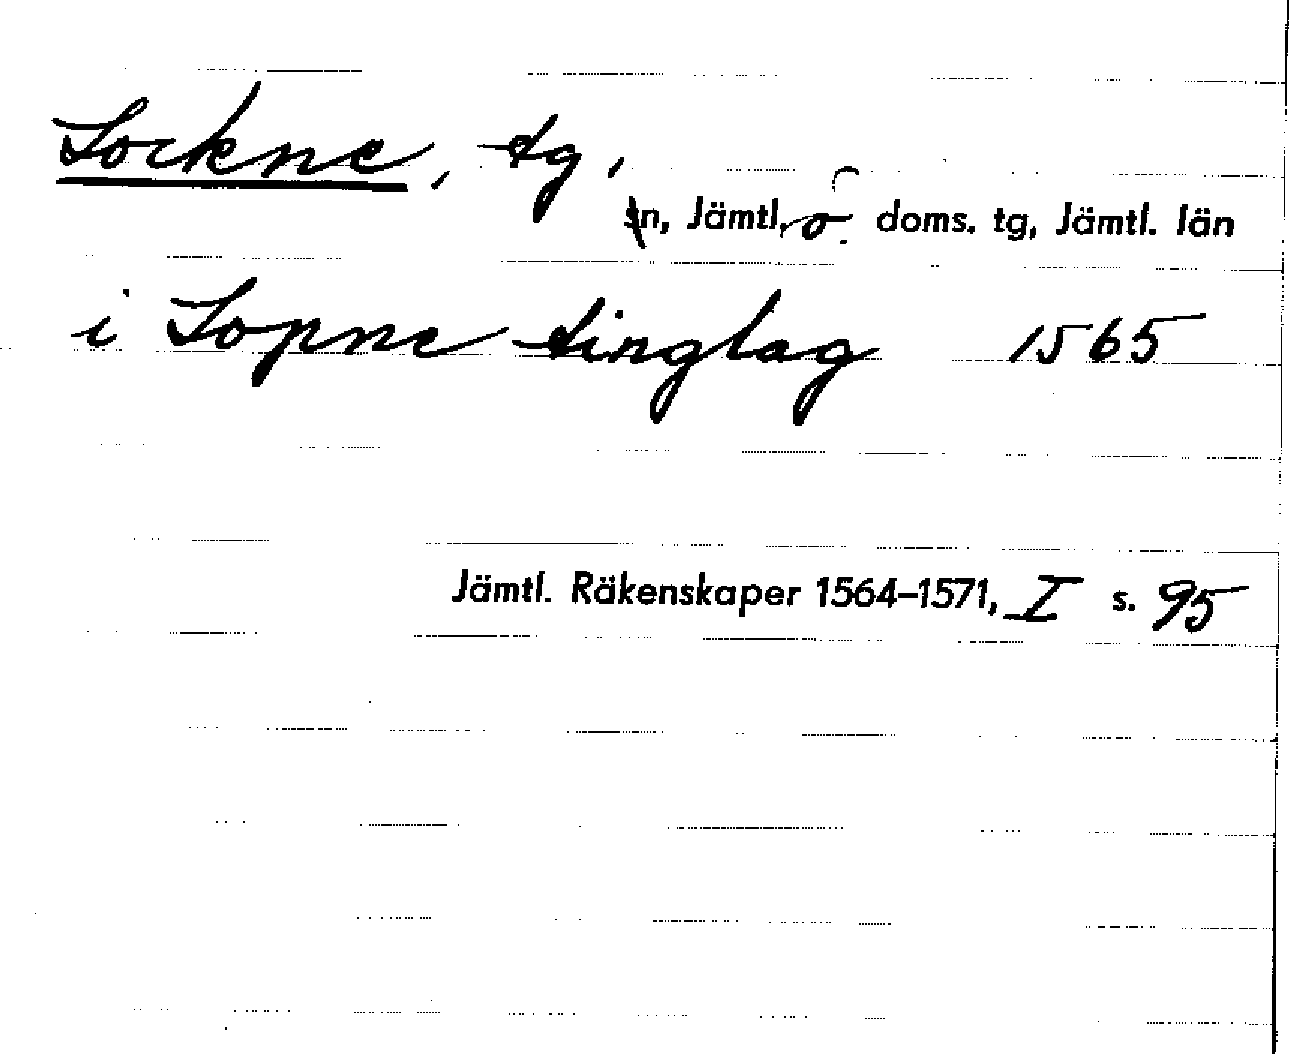 Lockne, tg,
sn, Jämtl. ö. doms. tg, Jämtl. län
i Lopne tinglag 1565
Jämtl. Räkenskaper 1564–1571, I s. 95